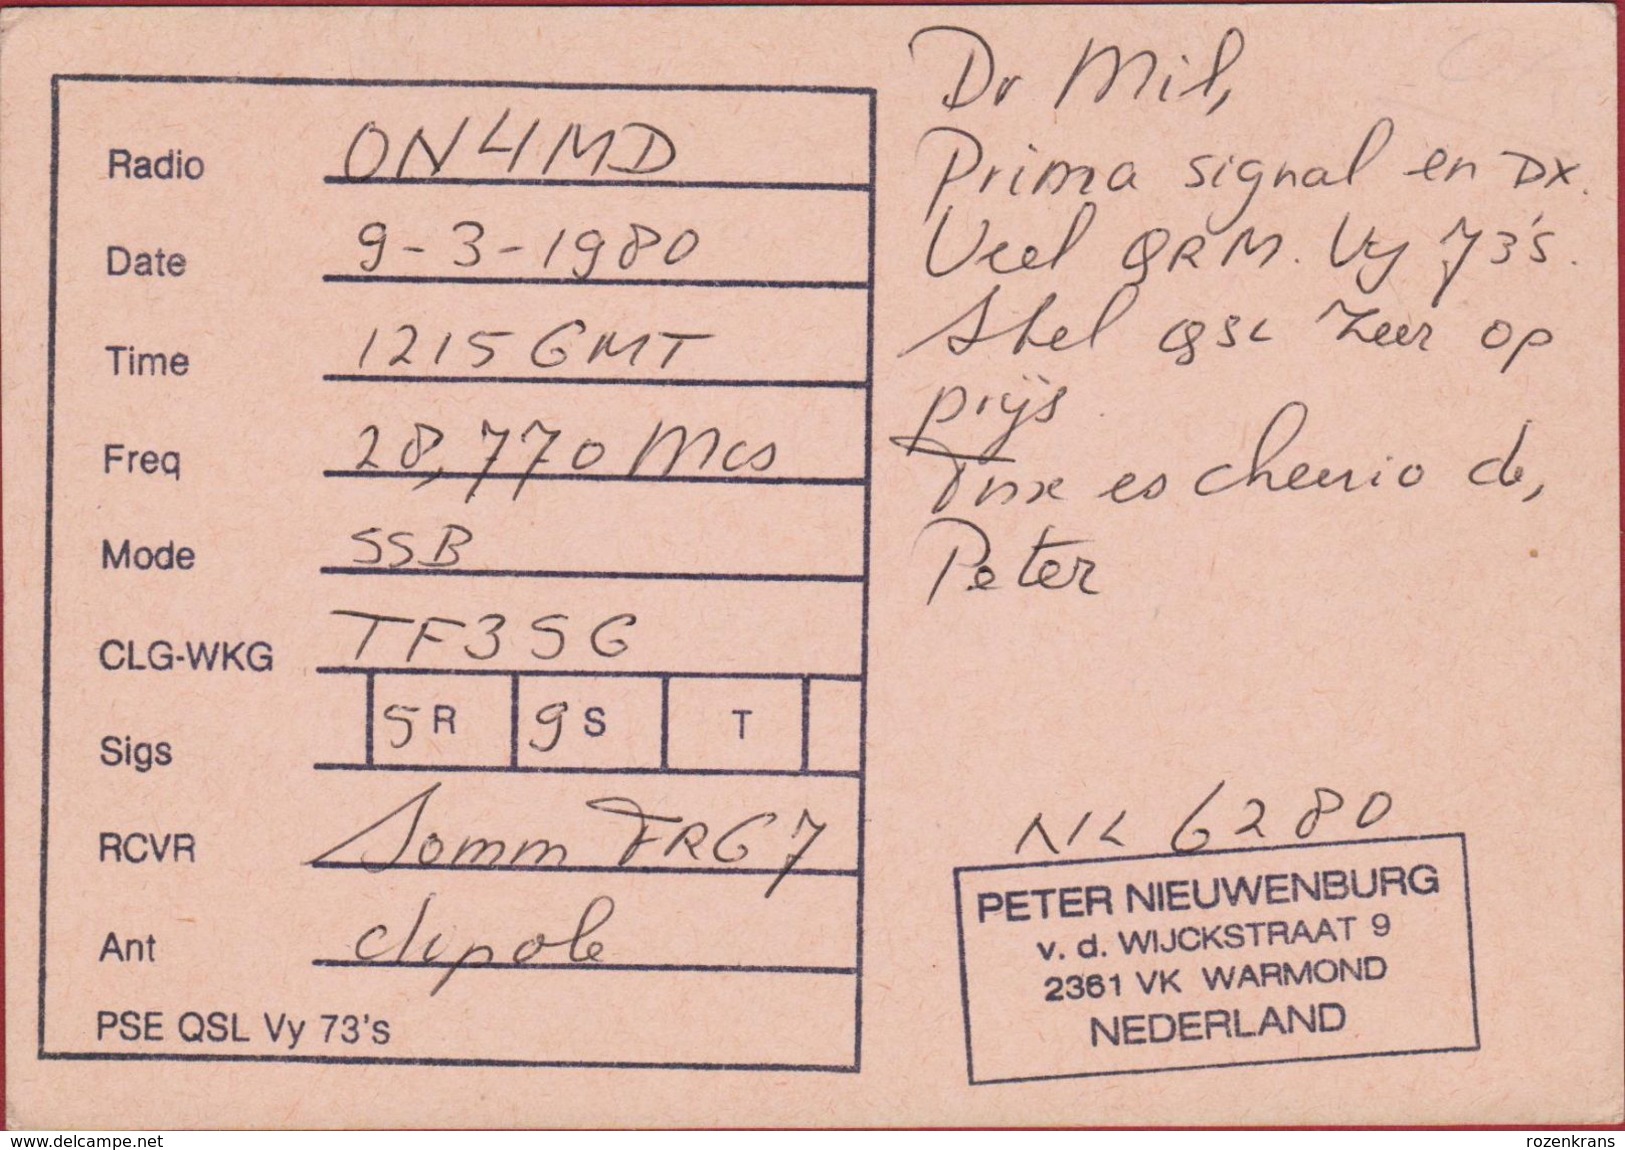 Radio ON4MD
Date 9-3-1980
Time 1215 GMT
Freq 28,770 Mcs
Mode SSB
CLG-WKG TF3SG
Sigs 5 R 9 S T
RCVR Somm FRG7
Ant dipole
PSE QSL Vy 73's
Dr Mil,
Prima signal en DX.
Veel QRM. Vy 73's.
Stel QSL zeer op
prijs.
Tnx es cheerio de,
Peter
NL 6280
PETER NIEUWENBURG
v. d. WIJCKSTRAAT 9
2361 VK WARMOND
NEDERLAND
www.delcampe.net
rozenkrans